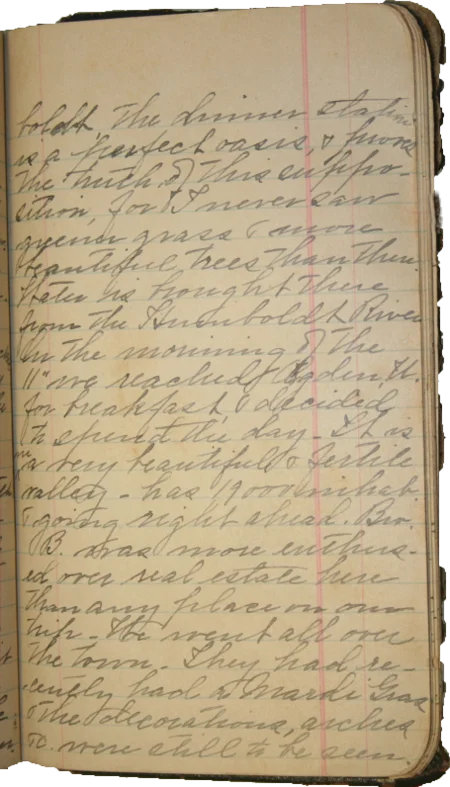 boldt, The dinner station
is a perfect oasis, & proves
the truth of this suppo-
sition, for I never saw
greener grass & more
beautiful trees than there
Water is brought there
from the Humboldt River
In the morning of the
11" we reached Ogden, U.
for breakfast & decided
to spend the day - It is
in a very beautiful & fertile
valley - has 19000 inhab.
& going right ahead. Bro.
B. was more enthus-
ed over real estate here
than any place on our
trip - He went all over
the town. They had re-
cently had a Mardi Gras
& the decorations, arches
&c. were still to be seen.